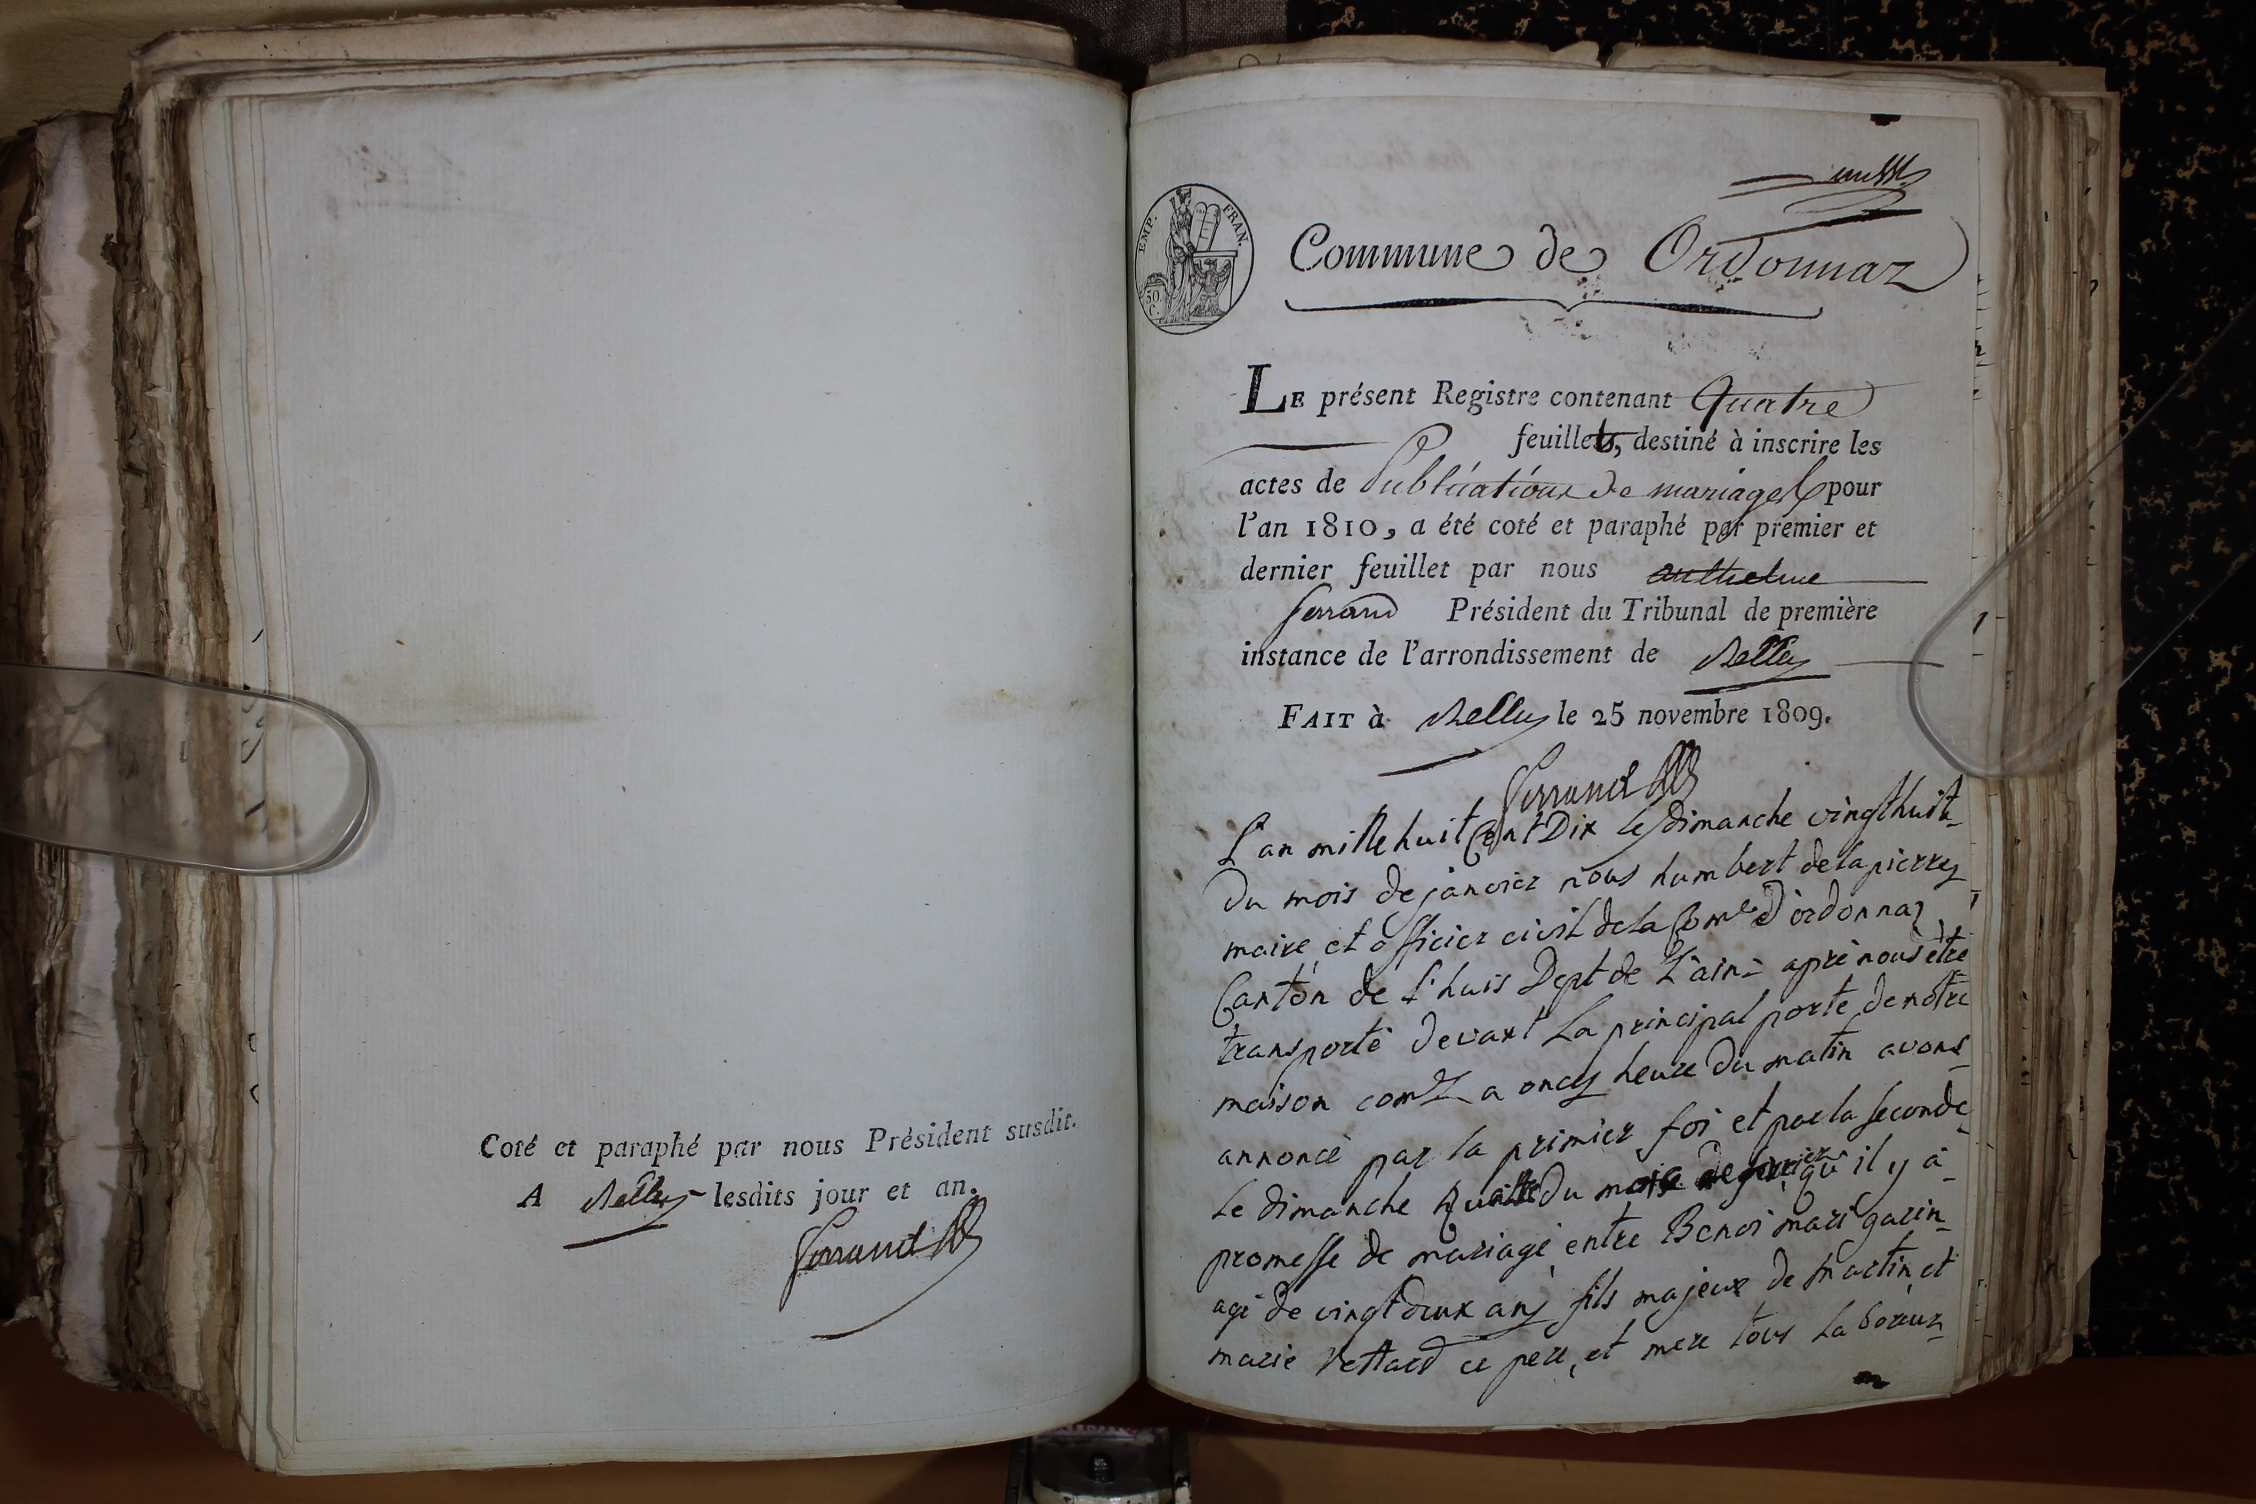 Coté et paraphé par nous Président susdit.
A Belley lesdits jour et an.
Ferrand
EMP. FRAN.
50 C.
Commune de Ordonnaz
LE présent Registre contenant Quatre
feuillets, destiné à inscrire les
actes de Publications de mariages pour
l'an 1810, a été coté et paraphé par premier et
dernier feuillet par nous anthelme
ferrand Président du Tribunal de première
instance de l'arrondissement de Belley
FAIT à Belley le 25 novembre 1809.
Ferrand
L'an mille huit Cent Dix le dimanche vingt huit
Du mois de janvier nous humbert delapierre
maire et officier civil de la Come d'ordonnaz
Canton de l'huis Dept de L'ain apré nous être
transporté devant La principal porte de notre
maison come a onze heure du matin avons
annoncé par la primier foi et par la seconde
Le dimanche Quatre du mois de fevrier qu'il y a
promesse de mariage entre Benoi mari garin
agé de vingt deux ans fils majeur de martin et
marie Vettard ce pere et mere tous La boreur